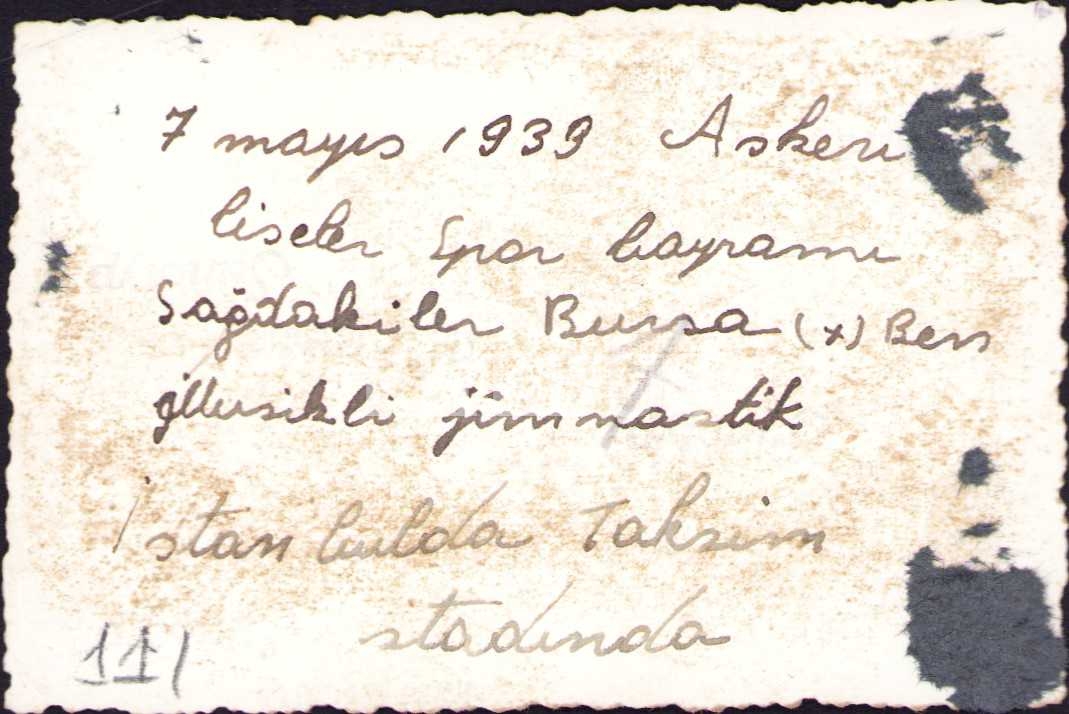 7 mayıs 1939 Askeri
liseler Spor bayramı
Sağdakiler Bursa (x) Ben
Musikli jimnastik
İstanbulda Taksim
stadında
111